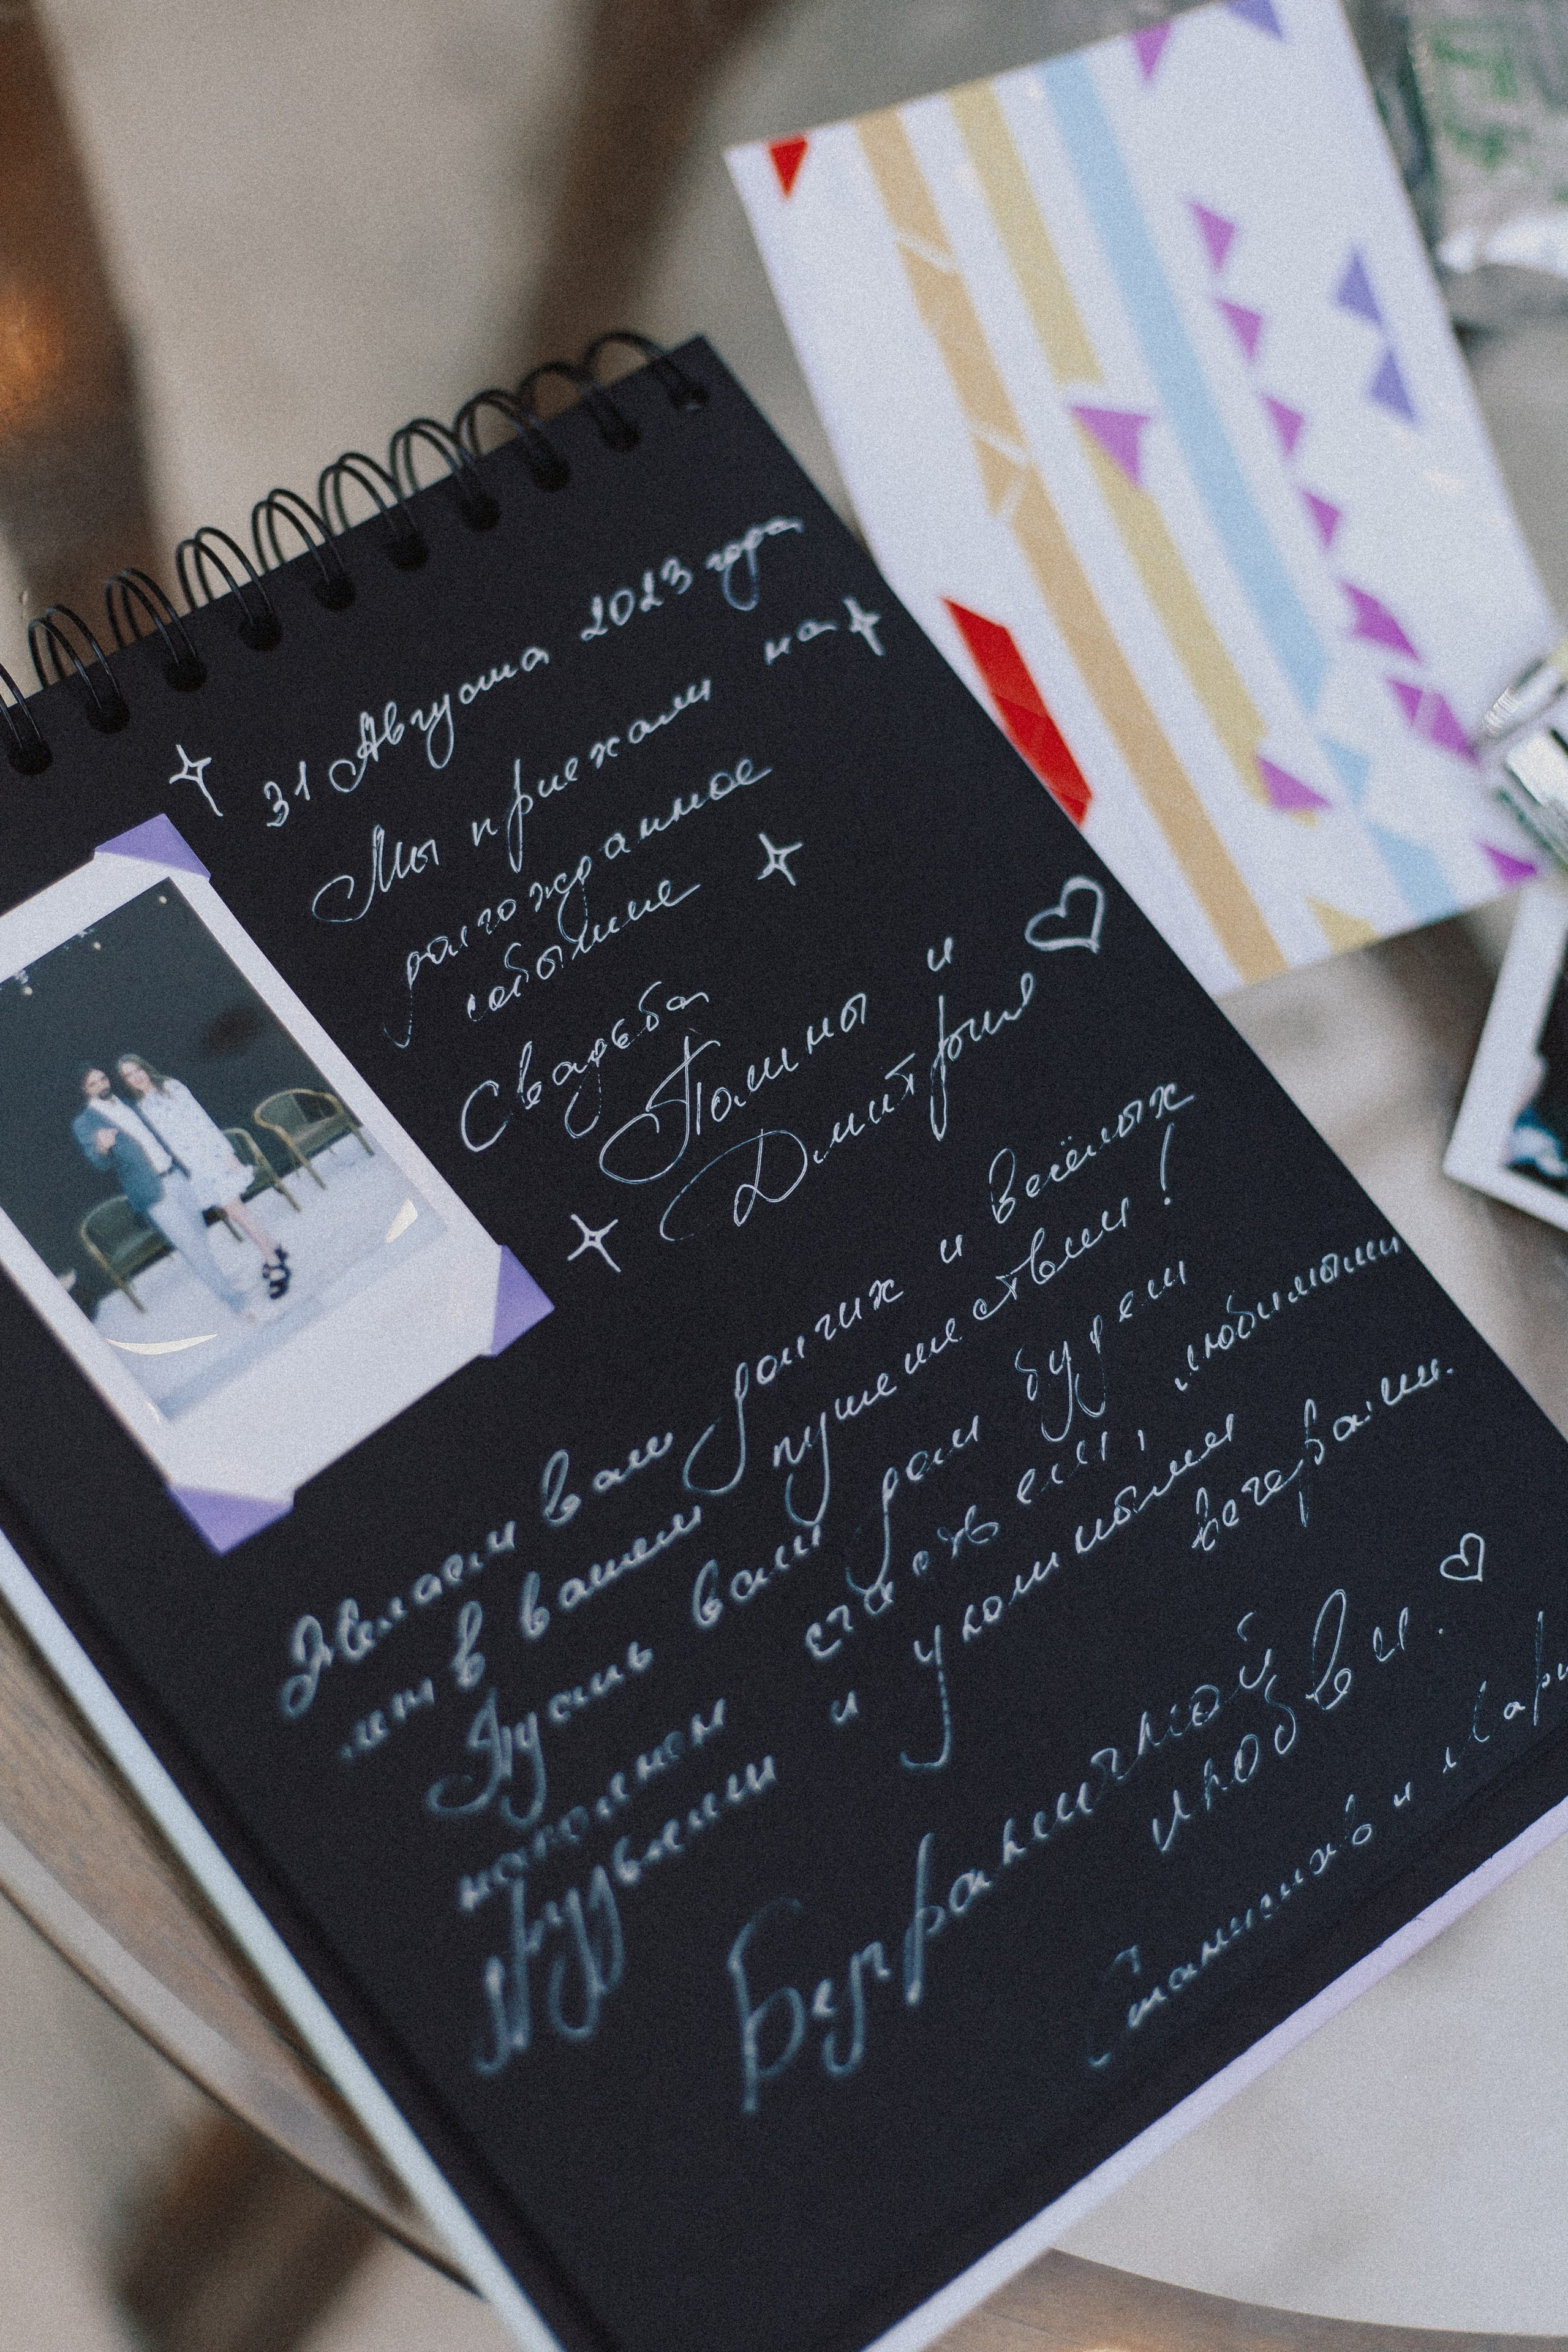 31 Августа 2023 года
Мы приехали на
долгожданное
событие
Свадьба
Полины и
Дмитрия
Желаем вам долгих и весёлых
лет в вашем путешествии!
Пусть ваш дом будет
наполнен счастьем, любимыми
друзьями и уютными
вечерами.
Безграничной
любви.
и